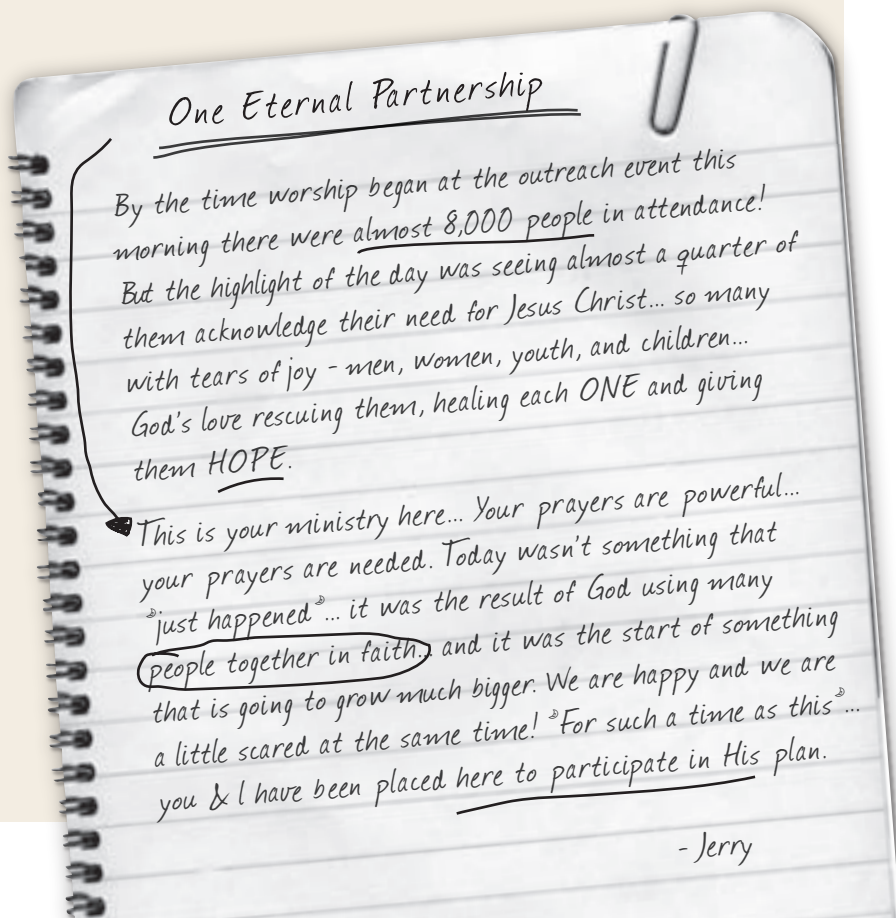 One Eternal Partnership
By the time worship began at the outreach event this
morning there were almost 8,000 people in attendance!
But the highlight of the day was seeing almost a quarter of
them acknowledge their need for Jesus Christ... so many
with tears of joy - men, women, youth, and children...
God's love rescuing them, healing each ONE and giving
them HOPE.
This is your ministry here... Your prayers are powerful...
your prayers are needed. Today wasn't something that
"just happened"... it was the result of God using many
people together in faith... and it was the start of something
that is going to grow much bigger. We are happy and we are
a little scared at the same time! "For such a time as this"...
you & I have been placed here to participate in His plan.
- Jerry